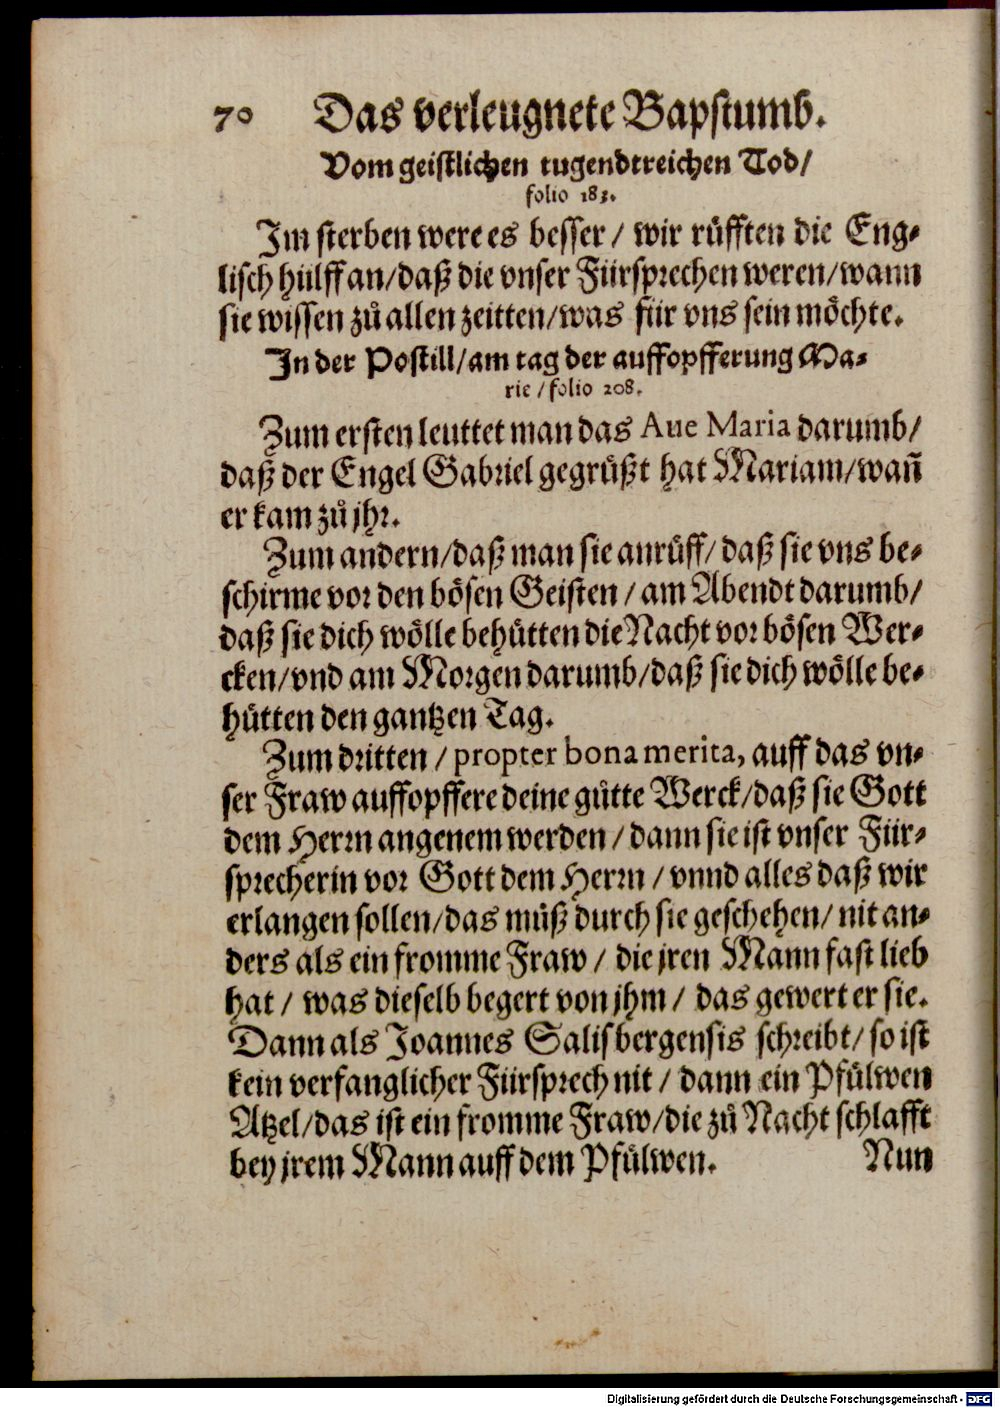 70 Das verleugnete Bapstumb.
Vom geistlichen tugendtreichen Tod/
folio 183.
Im sterben were es besser / wir rüfften die Eng-
lisch hülff an/daß die vnser Fürsprechen weren/wann
sie wissen zů allen zeitten/was für vns sein möchte.
In der Postill/am tag der auffopfferung Ma-
rie / folio 208.
Zum ersten leuttet man das Aue Maria darumb/
daß der Engel Gabriel gegrüßt hat Mariam/wañ
er kam zů jhr.
Zum andern/daß man sie anrüff/daß sie vns be-
schirme vor den bösen Geisten / am Abendt darumb/
daß sie dich wölle behütten die Nacht vor bösen Wer-
cken/vnd am Morgen darumb/daß sie dich wölle be-
hütten den gantzen Tag.
Zum dritten / propter bona merita, auff das vn-
ser Fraw auffopffere deine gůtte Werck/daß sie Gott
dem Herrn angenem werden / dann sie ist vnser Für-
sprecherin vor Gott dem Herrn / vnnd alles daß wir
erlangen sollen/das můß durch sie geschehen/ nit an-
ders als ein fromme Fraw / die jren Mann fast lieb
hat / was dieselb begert von jhm / das gewert er sie.
Dann als Joannes Salisbergensis schreibt/ so ist
kein verfanglicher Fürsprech nit / dann ein Pfülwen
Atzel/das ist ein fromme Fraw/die zů Nacht schlafft
bey jrem Mann auff dem Pfülwen. Nun
Digitalisierung gefördert durch die Deutsche Forschungsgemeinschaft - DFG